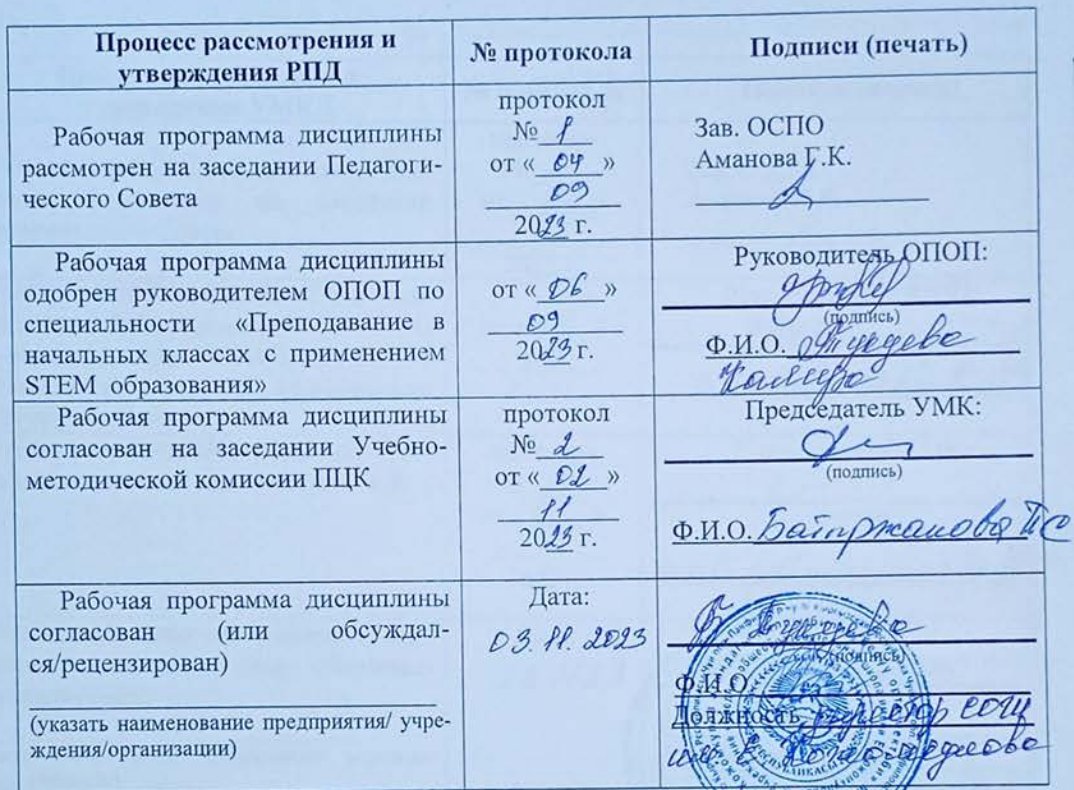 Процесс рассмотрения и
утверждения РПД
№ протокола
Подписи (печать)
Рабочая программа дисциплины
рассмотрен на заседании Педагоги-
ческого Совета
протокол
№ 1
от « 04 »
09
2023 г.
Зав. ОСПО
Аманова Г.К.
Рабочая программа дисциплины
одобрен руководителем ОПОП по
специальности «Преподавание в
начальных классах с применением
STEM образования»
от « 06 »
09
2023 г.
Руководитель ОПОП:
(подпись)
Ф.И.О.
Рабочая программа дисциплины
согласован на заседании Учебно-
методической комиссии ПЦК
протокол
№ 2
от « 02 »
11
2023 г.
Председатель УМК:
(подпись)
Ф.И.О.
Рабочая программа дисциплины
согласован (или обсуждал-
ся/рецензирован)
(указать наименование предприятия/ учре-
ждения/организации)
Дата:
03.11.2023
(подпись)
Ф.И.О.
Должность директор